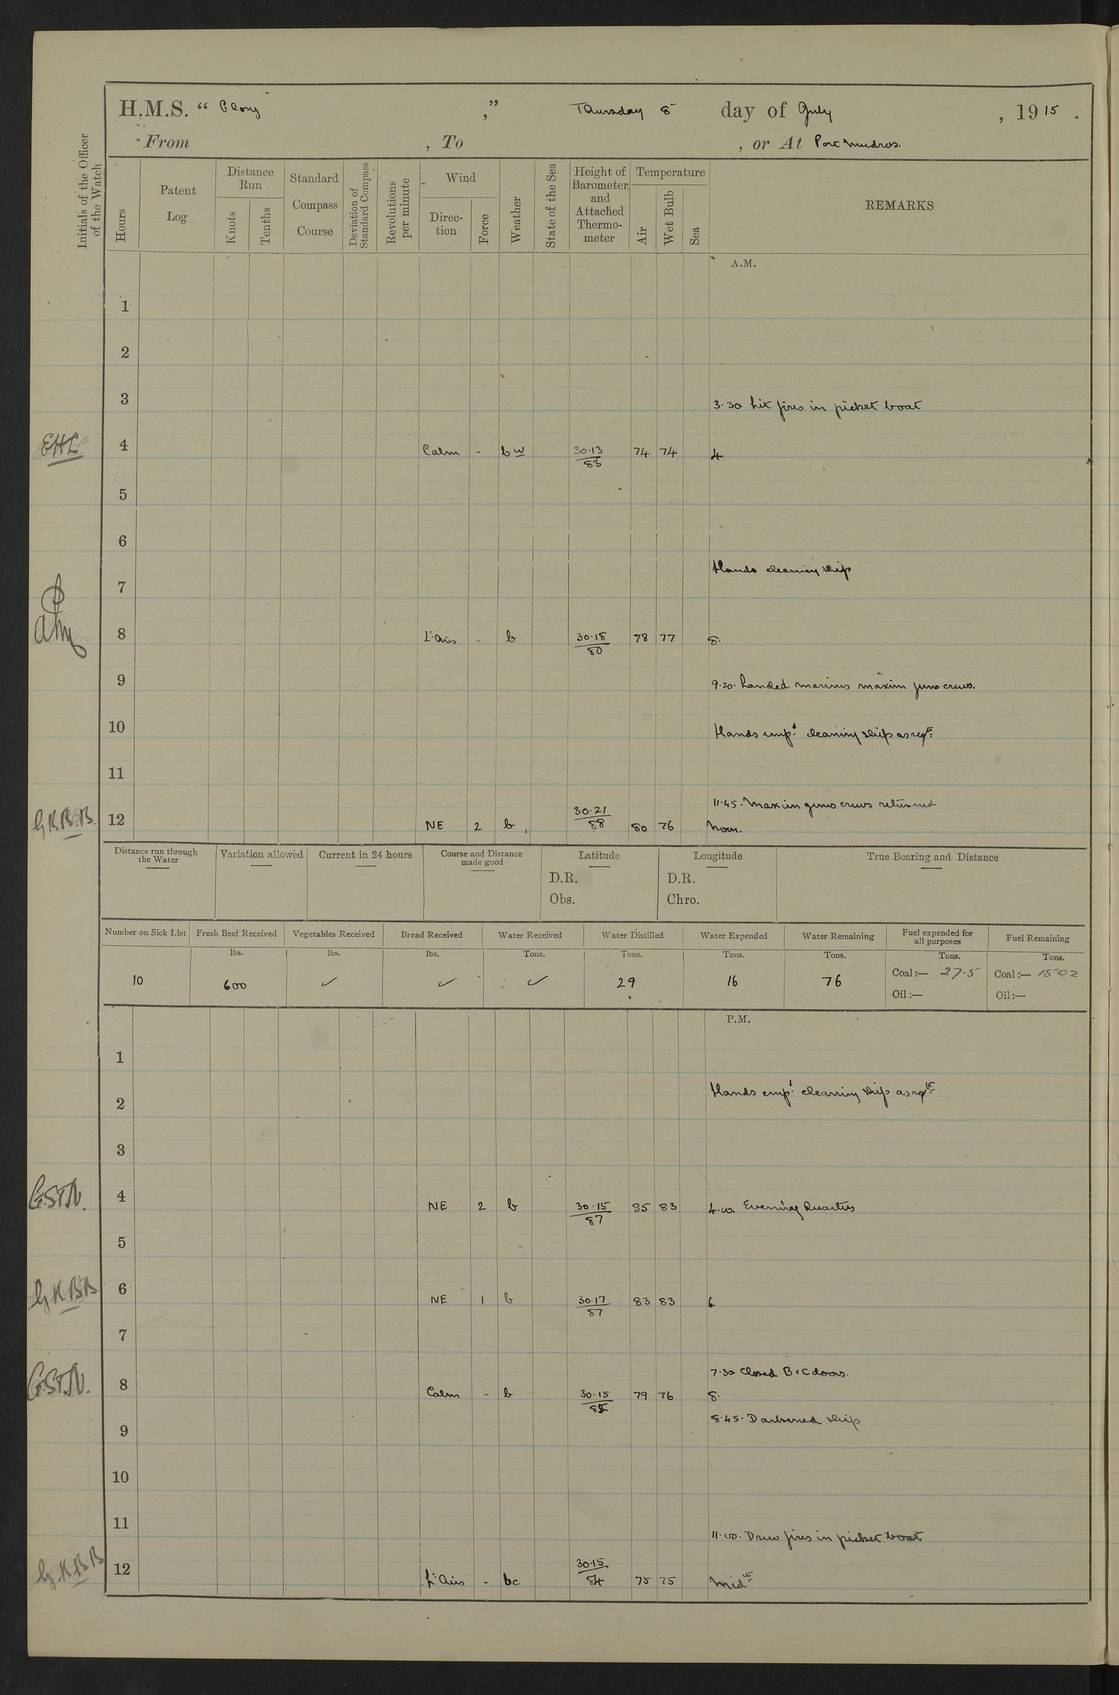 H.M.S. “ Glory ,” Thursday 8 day of July , 1915 .
From , To , or At Port Mudros.
Initials of the Officer of the Watch
Hours
Patent Log
Distance Run
Knots
Tenths
Standard Compass Course
Deviation of Standard Compass
Revolutions per minute
Wind
Direction
Force
Weather
State of the Sea
Height of Barometer and Attached Thermometer
Temperature
Air
Wet Bulb
Sea
REMARKS
A.M.
1
2
3 3.30 Lit fires in picket boat
EHL 4 Calm - bw 30.13/83 74 74 4
5
6
Hands cleaning ship
7
8 Lt airs - b 30.18/80 78 77 8.
9 9.20. Landed marines maxim guns crews.
10 Hands empd cleaning ship as reqte
11
11.45. Maxim guns crews returned
GKBB 12 NE 2 b 30.21/88 80 76 Noon.
Distance run through the Water
Variation allowed
Current in 24 hours
Course and Distance made good
Latitude
D.R.
Obs.
Longitude
D.R.
Chro.
True Bearing and Distance
Number on Sick List Fresh Beef Received Vegetables Received Bread Received Water Received Water Distilled Water Expended Water Remaining Fuel expended for all purposes Fuel Remaining
lbs. lbs. lbs. Tons. Tons. Tons. Tons. Tons. Tons.
10 600 ✓ ✓ ✓ 29 16 76 Coal:— 27.5 Coal:— 1502
Oil:— Oil:—
P.M.
1
2 Hands empd cleaning ship as reqte
3
G.S.T.N. 4 NE 2 b 30.15/87 85 83 4.00. Evening Quarters
5
GKBB 6 NE 1 b 30.17/87 83 83 6
7
7.30 Closed B & C doors.
G.S.T.N. 8 Calm - b 30.15/85 79 76 8.
8.45. Darkened ship
9
10
11 11.00. Drew fires in picket boat
GKBB 12 Lt Airs - bc 30.15/84 75 75 Midt